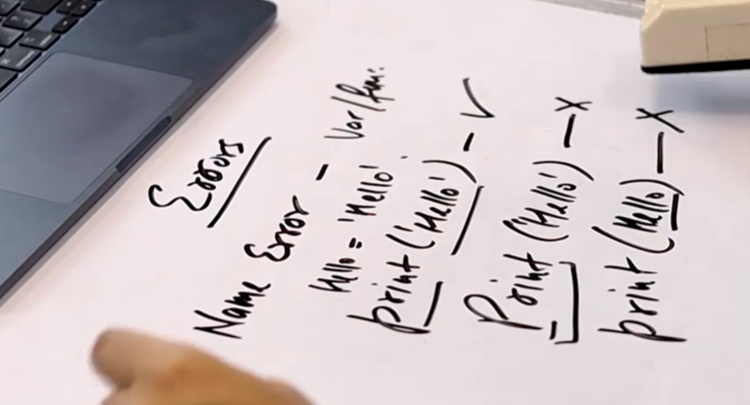 Errors
Name Error - Var/fun:
Hello = 'Hello'
print ('Hello') - ✓
Print ('Hello') - X
print (Hello) - X